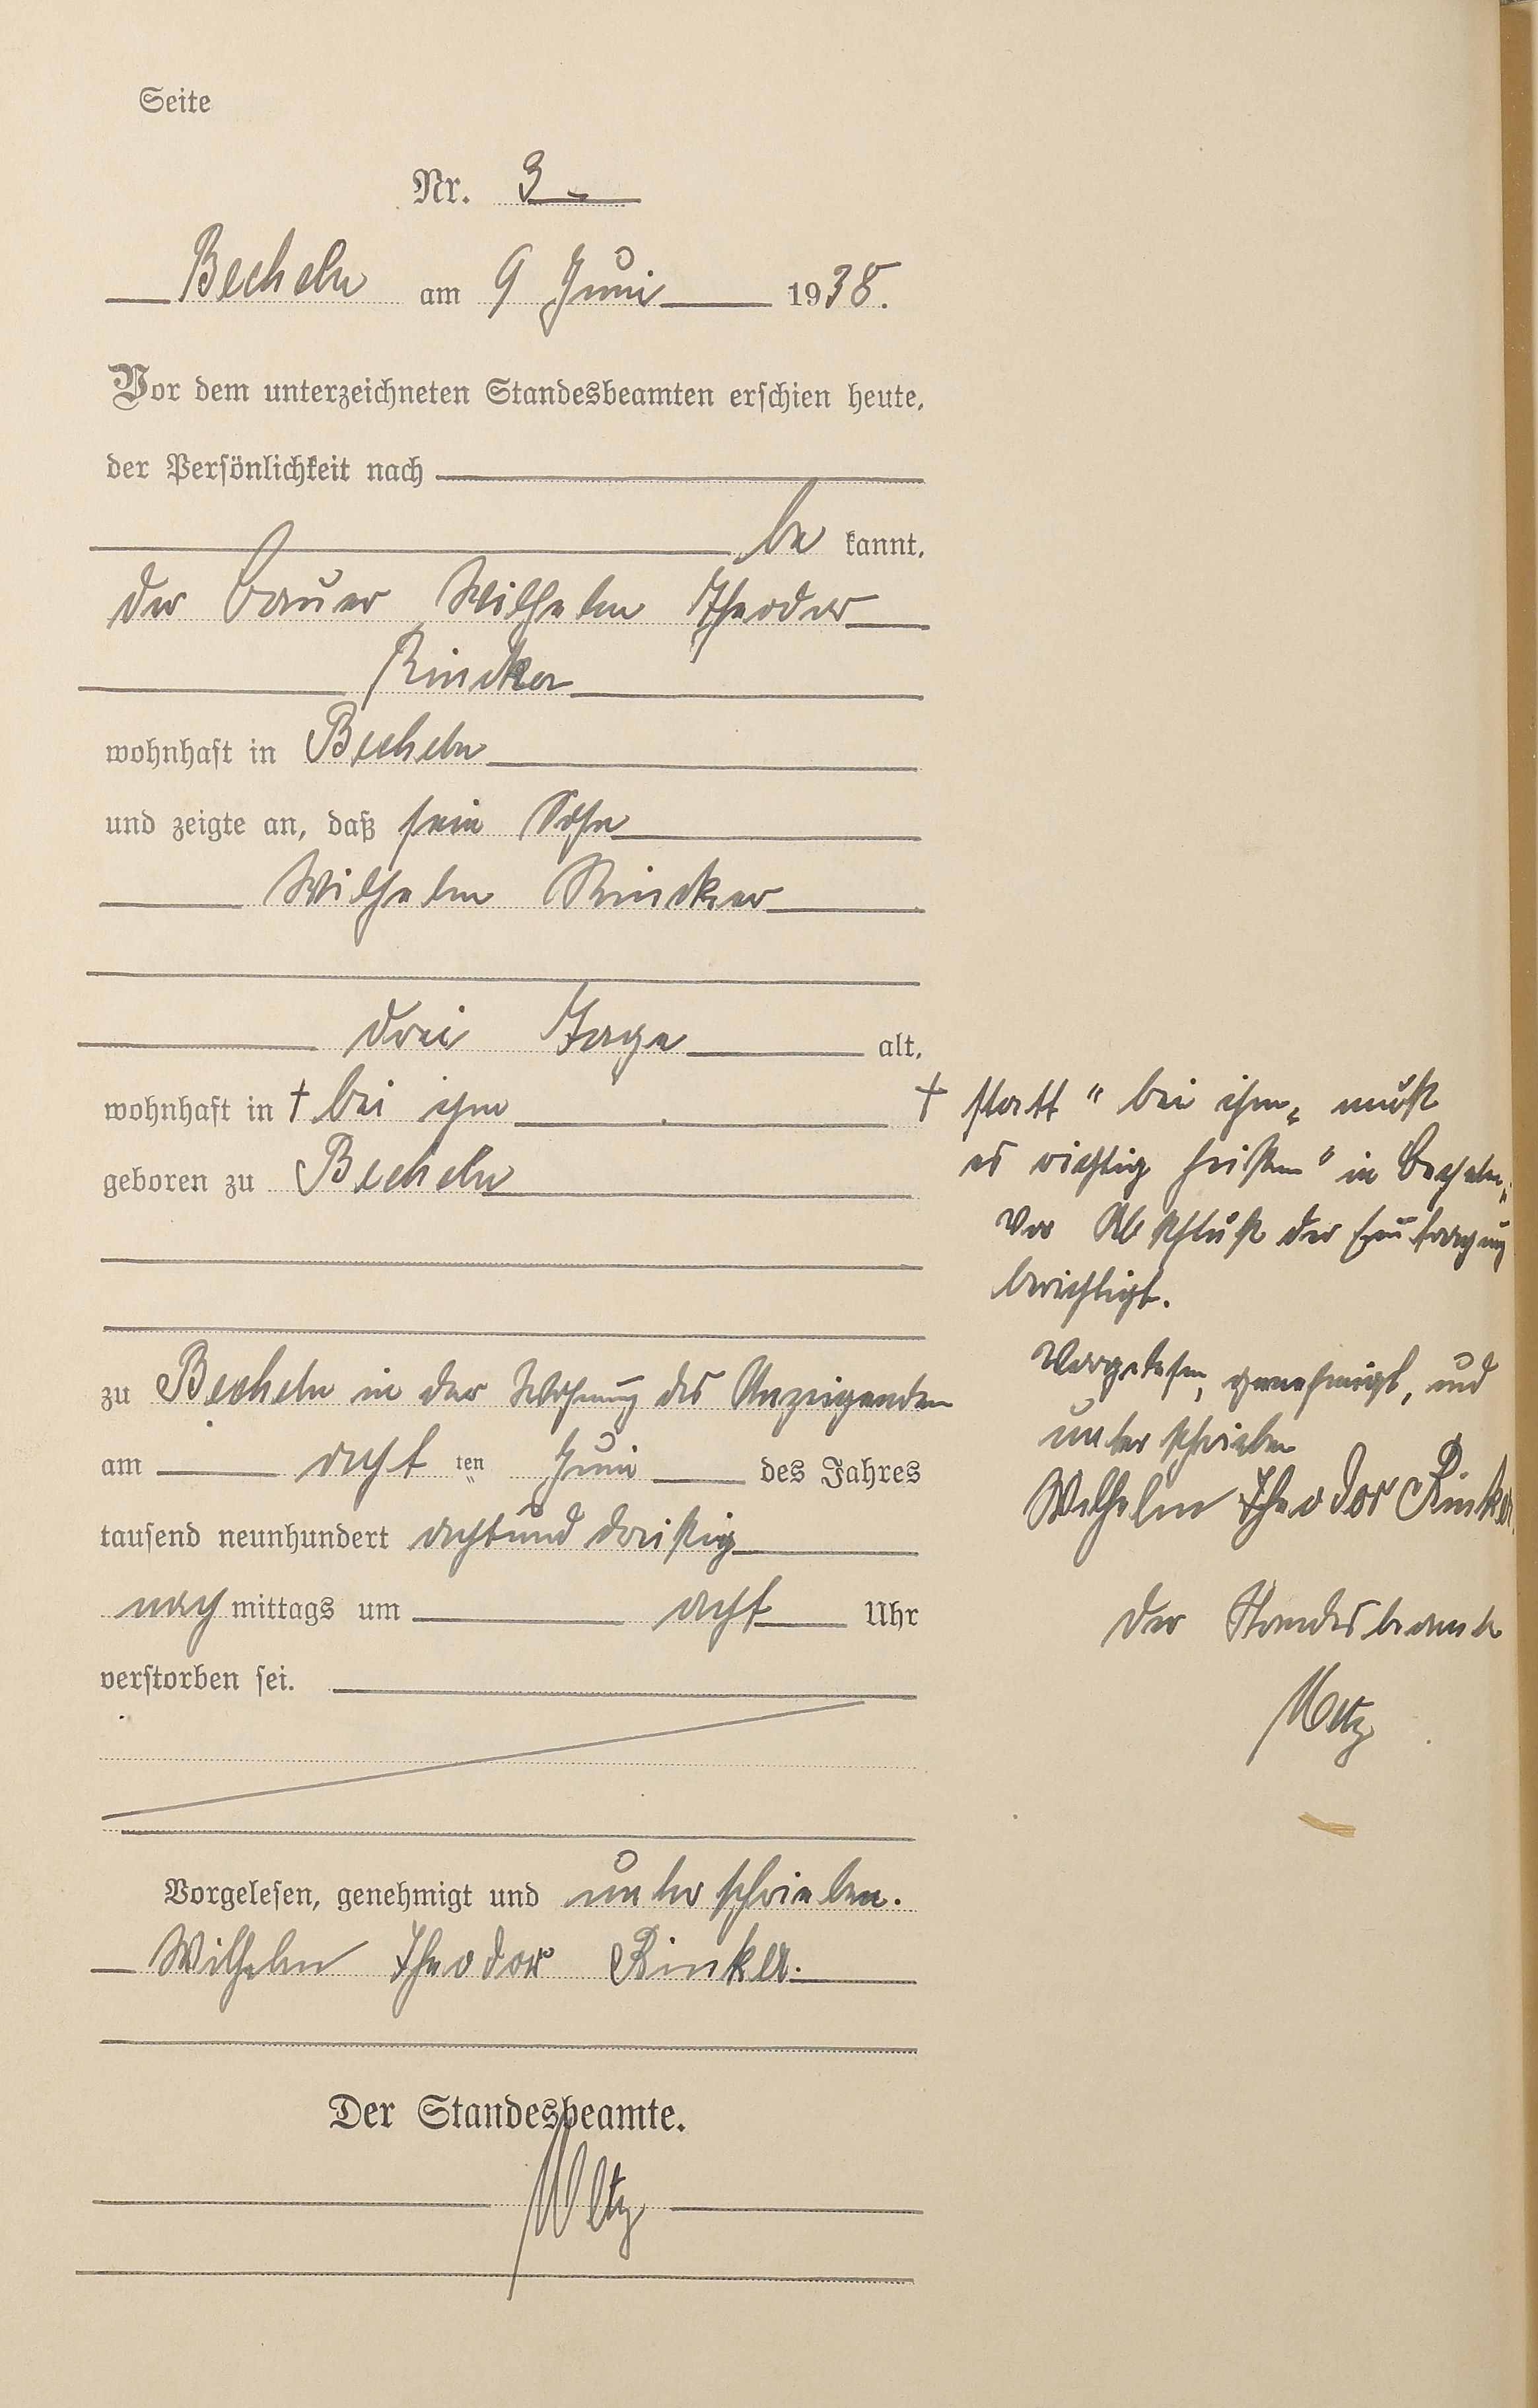 Seite
Nr. 3
Becheln am 9 Juni 1938.
Vor dem unterzeichneten Standesbeamten erschien heute,
der Persönlichkeit nach
be kannt,
der Bauer Wilhelm Theodor
Rincker
wohnhaft in Becheln
und zeigte an, daß sein Sohn
Wilhelm Rincker
drei Tage alt,
wohnhaft in † bei ihm
geboren zu Becheln
zu Becheln in der Wohnung des Anzeigenden
am acht ten Juni des Jahres
tausend neunhundert achtund dreißig
nach mittags um acht Uhr
verstorben sei.
Vorgelesen, genehmigt und unterschrieben.
Wilhelm Theodor Rinker.
Der Standesbeamte.
Metz
† statt "bei ihm" muß
es richtig heißen "in Becheln"
Vor Abschluß der Eintragung
berichtigt.
Vorgelesen, genehmigt, und
unterschrieben
Wilhelm Theodor Rinker.
Der Standesbeamte
Metz